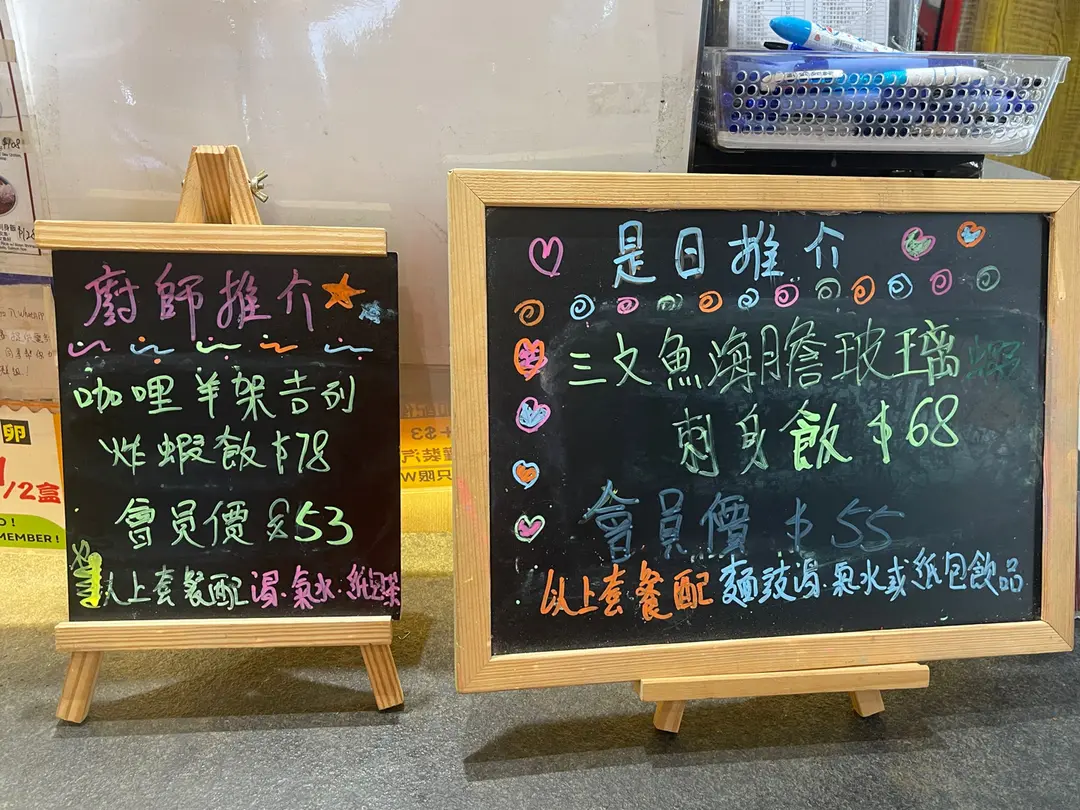 廚師推介
咖哩羊架吉列
炸蝦飯 $78
會員價 $53
以上套餐配 湯.氣水.紙包茶
是日推介
三文魚海膽玻璃
刺身飯 $68
會員價 $55
以上套餐配 麵豉湯.氣水或紙包飲品
卵
/2盒
MEMBER!